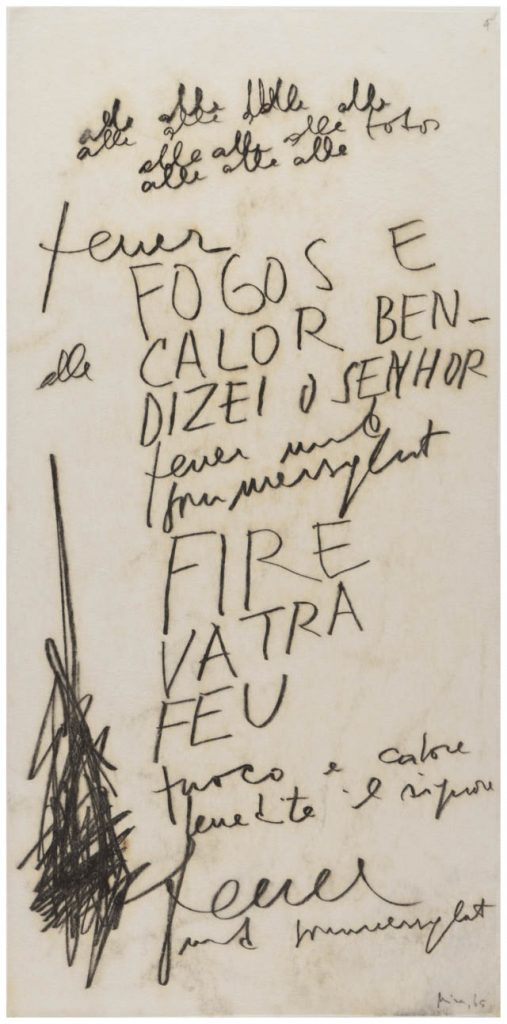 alle alle alle alle
alle alle alle alle fotos
alle alle alle
alle alle alle
feuer
FOGOS E
CALOR BEN-
alle
DIZEI O SENHOR
feuer und
sommersglut
FIRE
VATRA
FEU
fuoco e calore
benedite il signore
feuer
und sommersglut
Mira, 65